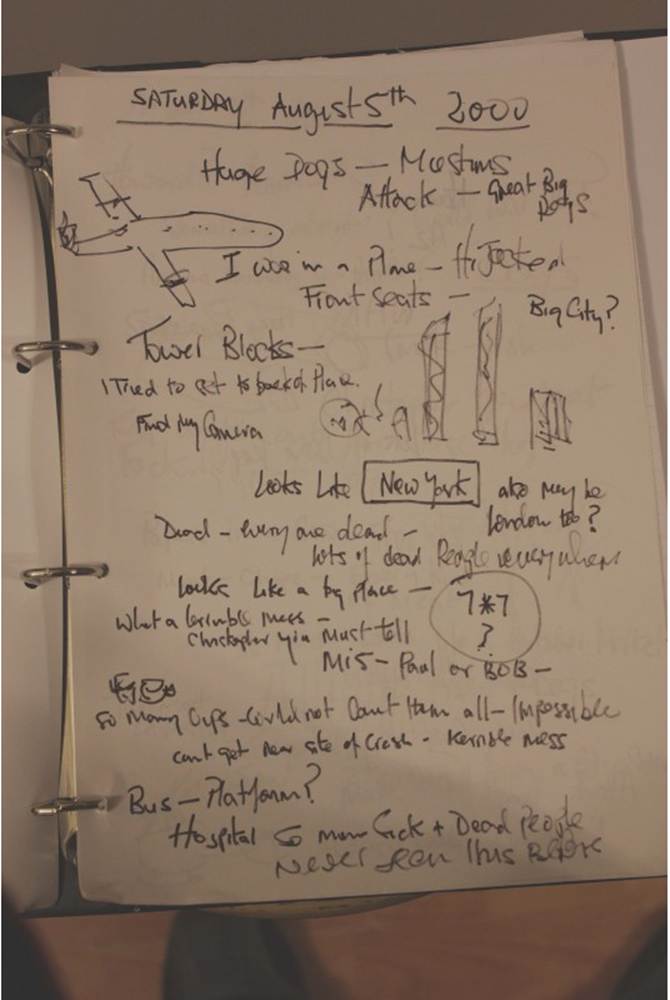 SATURDAY August 5th 2000
Huge Dogs — Muslims
Attack — Great Big
Dogs
I was in a Plane — HiJacked
Front seats —
Big City?
Tower Blocks —
I Tried to get to back of Plane.
Find My Camera
Looks Like New York also may be
London too?
Dead – everyone dead –
lots of dead People everywhere
looks like a big place —
7*7
?
What a terrible mess –
Christopher you Must tell
Mi5 – Paul or BOB –
So Many Cups – Could not Count them all – Impossible
cant get near site of Crash – terrible mess
Bus — Platform?
Hospital So many Sick + Dead People
Never seen this Before